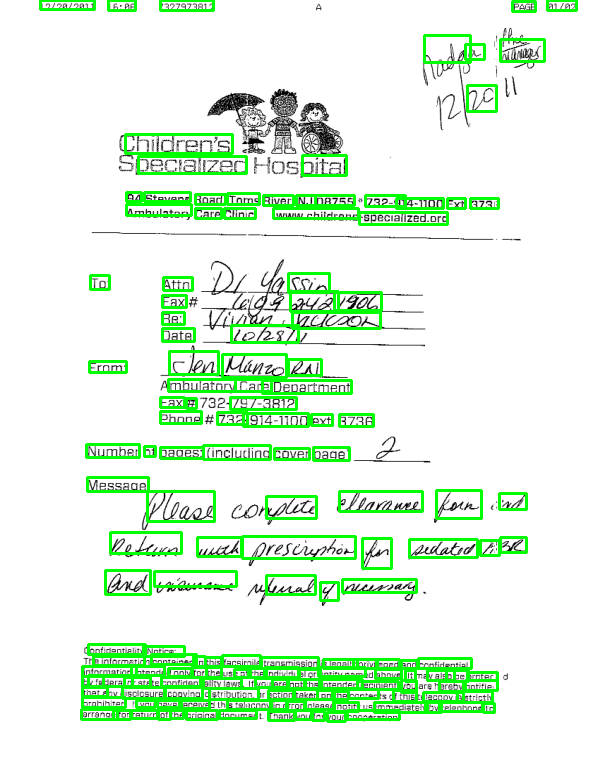 12/20/2011 16:06 7327973812 A PAGE 01/02
Nadya : the manager
12/20/11
Children's
Specialized Hospital
94 Stevens Road Toms River, NJ 08755 * 732-914-1100 Ext 3736
Ambulatory Care Clinic www.childrens-specialized.org
To: Attn: Dr Yassin
Fax # 609 242 1906
Re: Vivian
Date: 10/28/11
From: Jen Manzo RN
Ambulatory Care Department
Fax # 732-797-3812
Phone # 732-914-1100 ext 3736
Number of pages (including cover page) 2
Message
Please complete clearance form and
Return with prescription for sedated
and insurance referral if necessary.
Confidentiality Notice:
The information contained in this facsimile transmission is legally privileged and confidential
information intended only for the use of the individual or entity named above. It may also be protected
by federal or state confidentiality laws. If you are not the intended recipient, you are hereby notified
that any disclosure, copying, distribution, or action taken on the contents of this telecopy is strictly
prohibited. If you have received this telecopy in error, please notify us immediately by telephone to
arrange for return of the original document. Thank you for your cooperation.